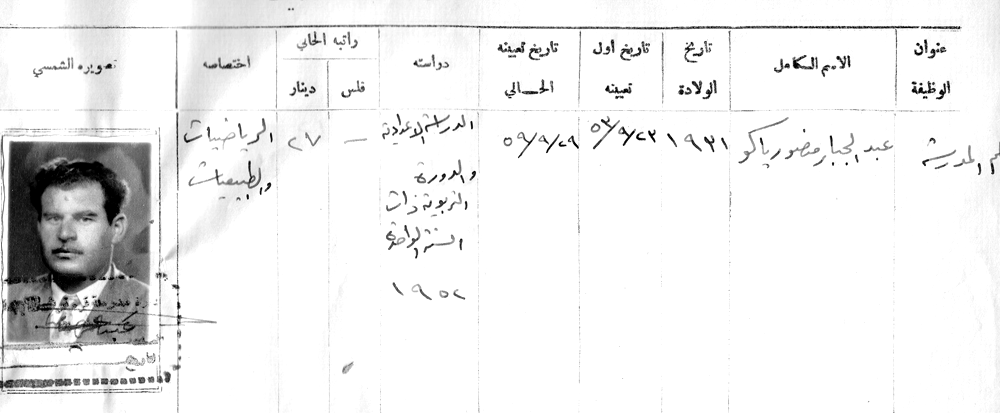 عنوان
الوظيفة
الاسم الكامل
تاريخ
الولادة
تاريخ أول
تعيينه
تاريخ تعيينه
الحالي
دراسته
راتبه الحالي
فلس
دينار
اختصاصه
تصويره الشمسي
المدرسة
عبد الجبار منصور پاكو
١٩٣١
٥٣/٩/٢٣
٥٩/٩/٢٩
الدراسة الاعدادية
والدورة
التربوية ذات
السنة الواحدة
١٩٥٢
—
٢٧
الرياضيات
والطبيعيات
التاريخ